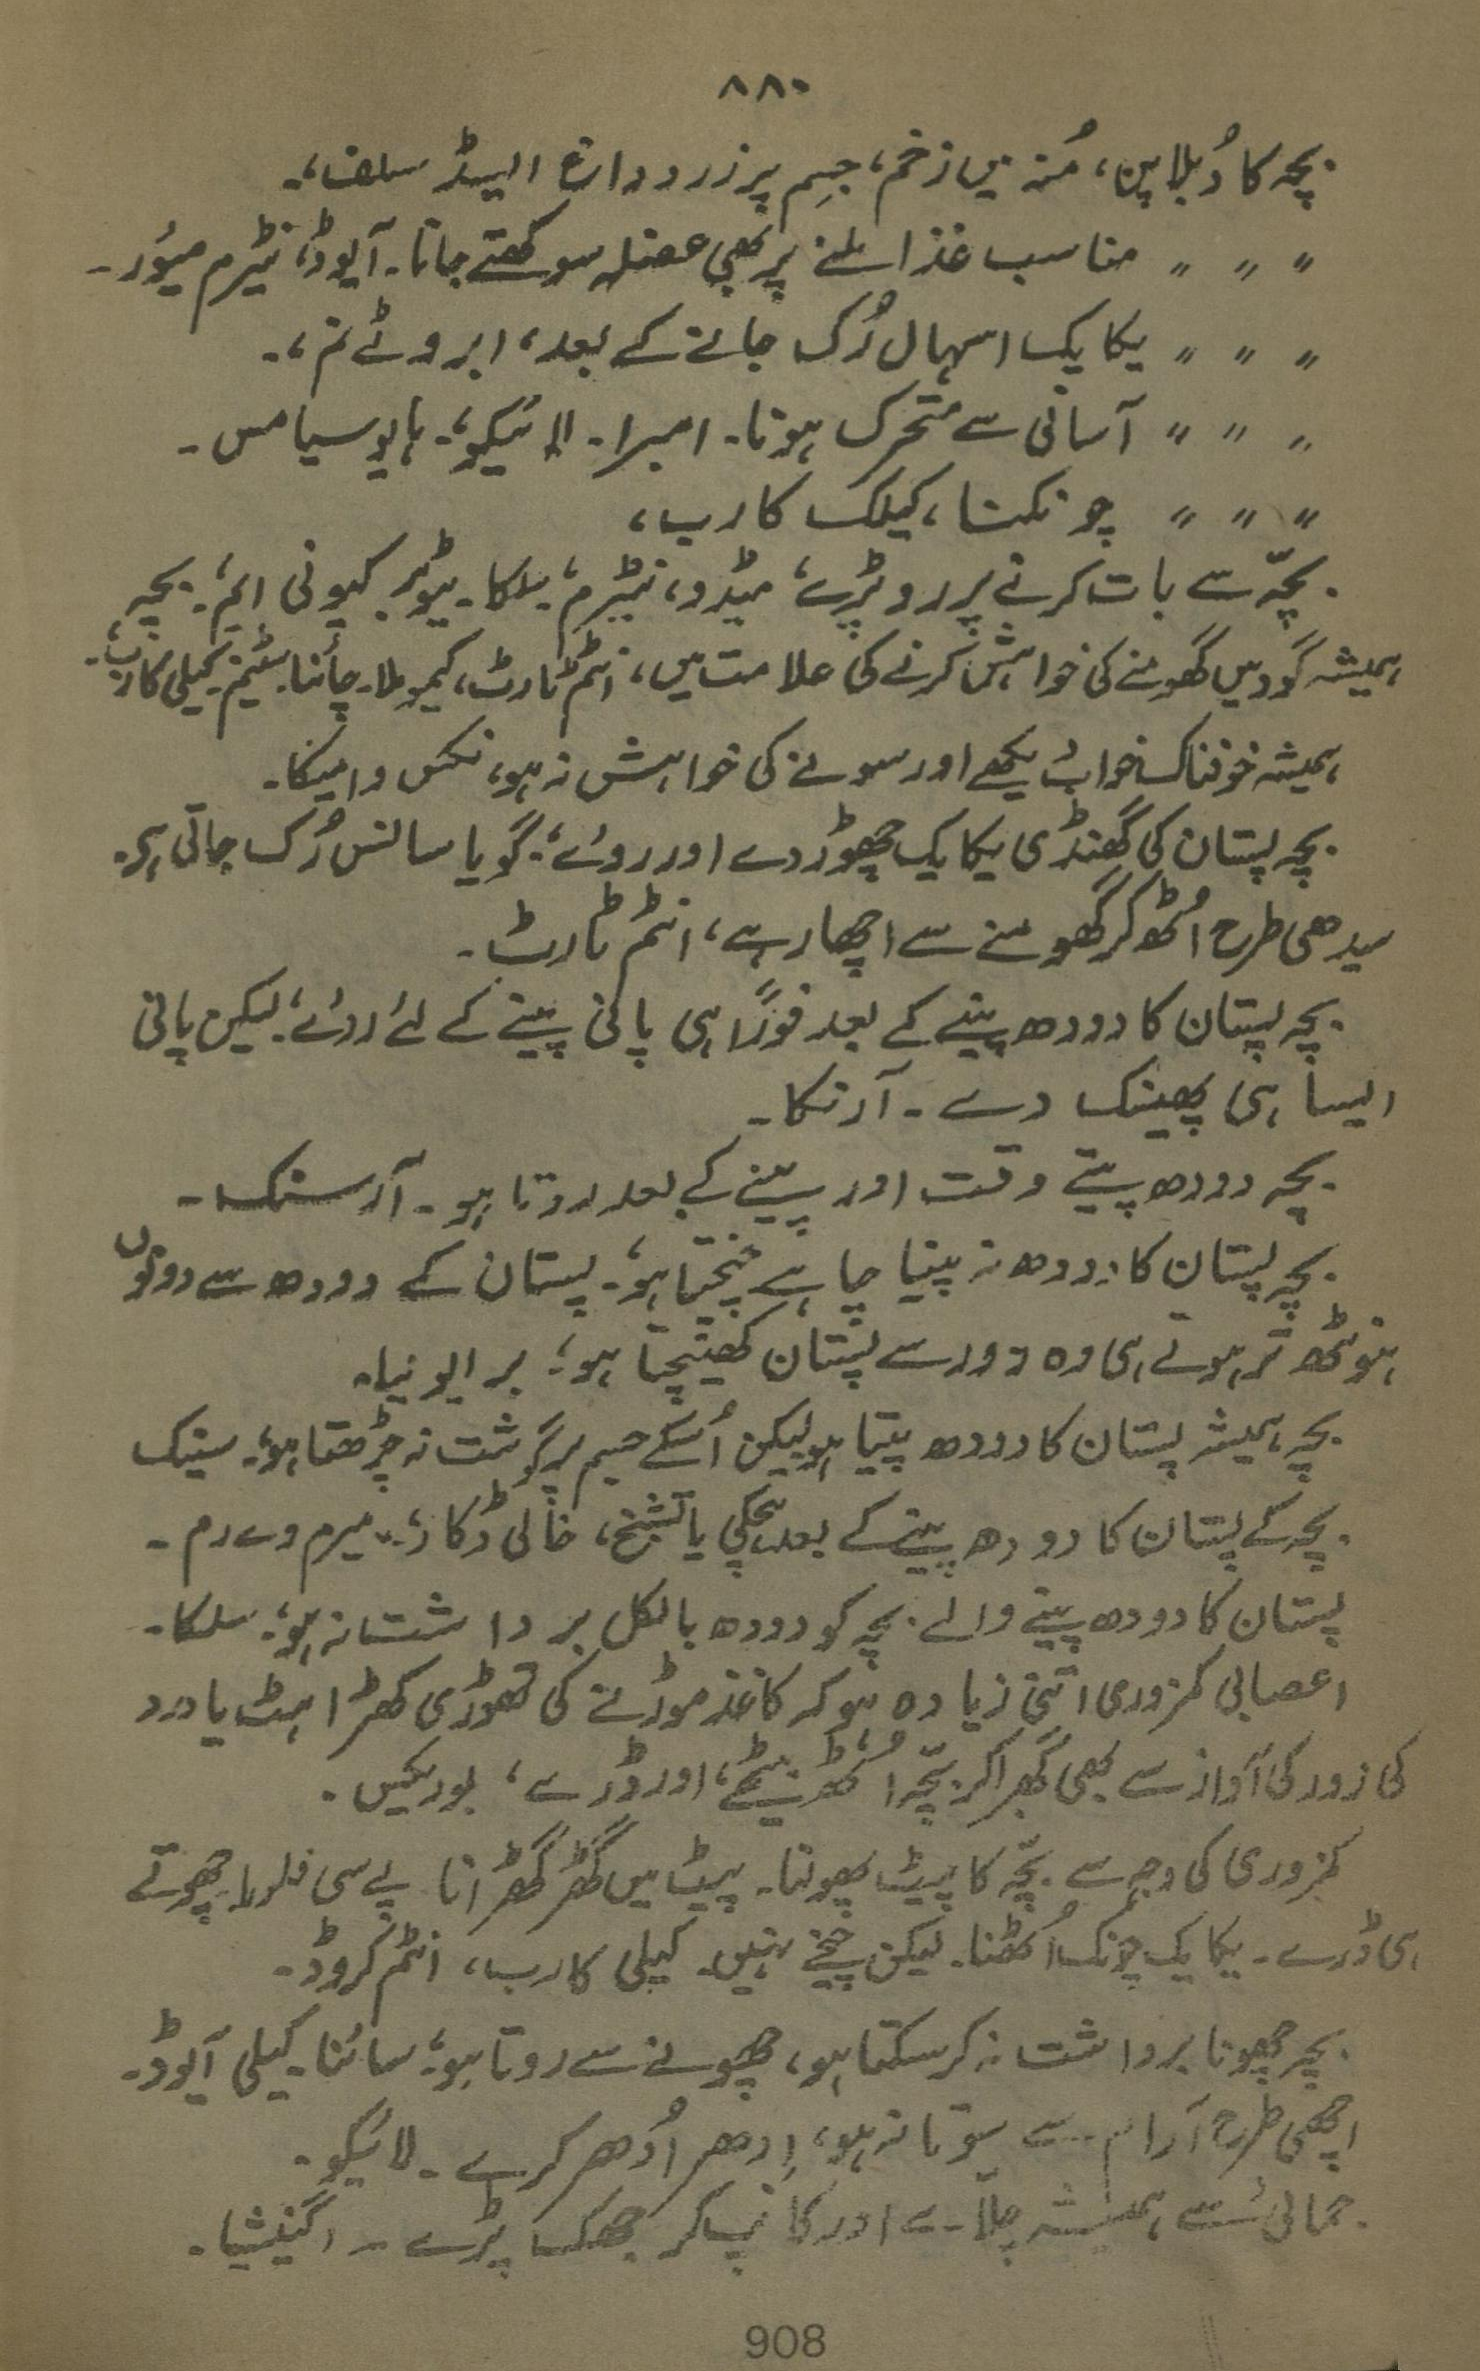 ۸۸۰
بچہ کا دُبلا پن، مُنہ میں زخم، جِسم پر زرد دارۂ الیسڈ سلف،۔
〃 〃 〃 〃 مناسب غذا ملنے پر بھی عضلہ سوکھتے جانا۔ آیوڈ، نیٹرم میُور۔
〃 〃 〃 〃 یکایک اسہال رُک جانے کے بعد، ابروٹے نم،۔
〃 〃 〃 〃 آسانی سے متحرک ہونا۔ امبرا۔ لائیکو،۔ ہایوسیامس۔
〃 〃 〃 〃 چونکنا، کیلک کارب،
بچّہ سے بات کرنے پر رو پڑے، میڈو، نیٹرم، سلکا۔ ٹیوبر کیونی ایم،۔ بچہ
ہمیشہ گود میں گھومنے کی خواہش کرنے کی علامت میں، انٹم ٹارٹ، کیمو ملا۔ چائنا۔ سٹیم۔ کیلی کارب،۔
ہمیشہ خوفناک خواب دیکھے اور سونے کی خواہش نہ ہو، نکس وامیکا۔
بچہ پستان کی گھنڈی یکایک چھوڑ دے اور روئے،۔ گویا سانس رُک جاتی ہی۔
سیدھی طرح اُٹھ کر گھومنے سے اچھا رہے، انٹم ٹارٹ۔
بچہ پستان کا دودھ پینے کے بعد فوراً ہی پانی پینے کے لئے روئے،۔ لیکن پانی
ایسا ہی پھینک دے۔ آرنکا۔
بچہ دودھ پیتے وقت اور پینے کے بعد روتا ہو۔ آرسنک۔
بچہ پستان کا دودھ نہ پینا چاہے چیختا ہو،۔ پستان کے دودھ سے دونوں
ہونٹھ تر ہوتے ہی وہ زور سے پستان کھینچتا ہو،۔ برایونیا۔
بچہ ہمیشہ پستان کا دودھ پیتا ہو لیکن اُسکے جسم پر گوشت نہ چڑھتا ہو،۔ سینک
بچہ کے پستان کا دودھ پینے کے بعد ہچکی یا تشنج، خالی ڈکار،۔ میرم وے رم۔
پستان کا دودھ پینے والے بچہ کو دودھ بالکل برداشت نہ ہو،۔ سلکا۔
اعصابی کمزوری اتنی زیادہ ہو کہ کاغذ موڑنے کی تھوڑی کھڑاہٹ یا درد
کی زور کی آواز سے بھی گھبرا کر بچّہ اُٹھ بیٹھے، اور ڈرے، بوریکس۔
کمزوری کی وجہ سے بچّہ کا پیٹ پھولنا۔ پیٹ میں گھڑگھڑانا پے سی فلورا۔ چھوتے
ہی ڈرے۔ یکایک چونک اُٹھنا۔ لیکن چیخے نہیں۔ کیلی کارب، انٹم کروڈ۔
بچہ چھونا برداشت نہ کر سکتا ہو، چھونے سے روتا ہو،۔ سائنا۔ کیلی آیوڈ۔
اچھی طرح آرام سے سوتا نہ ہو، اِدھر اُدھر کرے۔ لائیکو۔
جمائی سے ہمیشہ چلّائے اور کانپ کر جھک پڑے۔ اگنیشیا۔
908